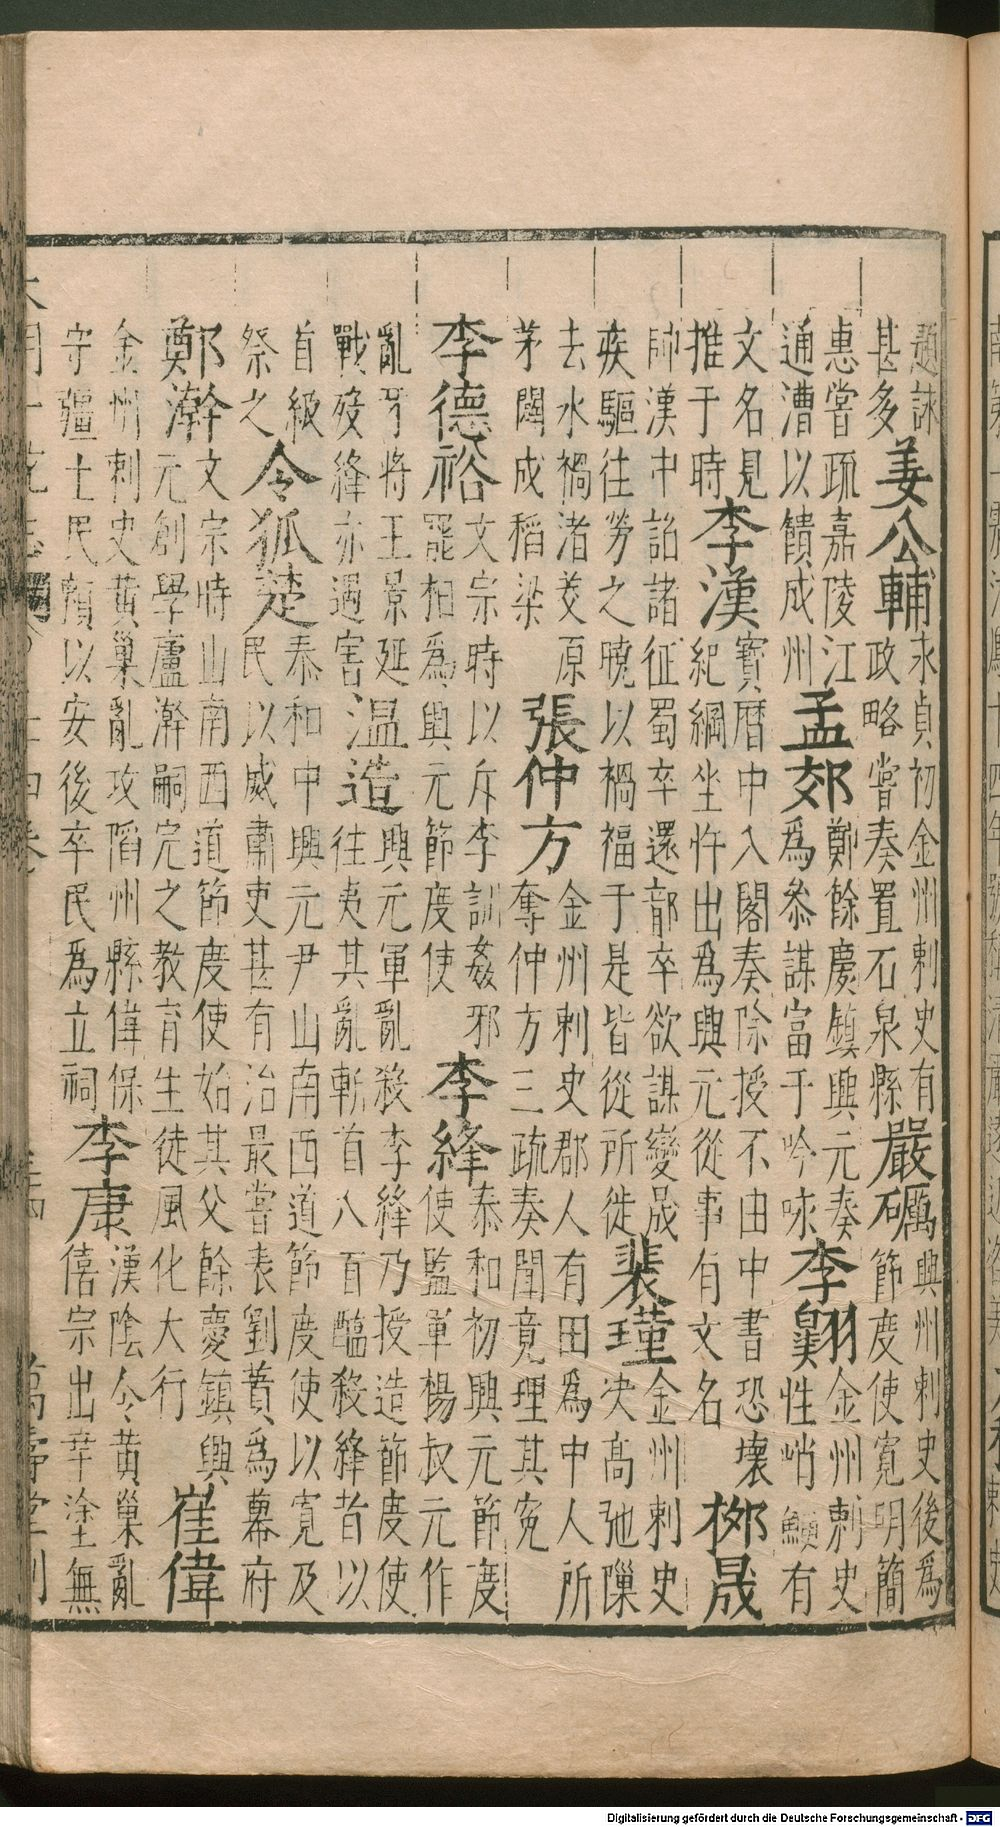 題詠
甚多
姜公輔
永貞初金州刺史有
政略嘗奏置石泉縣
嚴礪
興州刺史後為
節度使寬明簡
惠嘗疏嘉陵江
通漕以饋成州
孟郊
鄭餘慶鎮興元奏
為叅謀富于吟咏
李翱
金州刺史
性峭鯁有
文名見
推于時
李漢
寳曆中入閣奏除授不由中書恐壞
紀綱坐忤出為興元從事有文名
柳晟
帥漢中詔諸征蜀卒還部卒欲謀變晟
疾驅往勞之曉以禍福于是皆從所徙
裴瑾
金州刺史
决高弛隟
去水禍渚茭原
茅闢成稻梁
張仲方
金州刺史郡人有田為中人所
奪仲方三疏奏聞竟理其寃
李德裕
文宗時以斥李訓姦邪
罷相為興元節度使
李絳
泰和初興元節度
使監軍楊叔元作
亂牙將王景延
戰歿絳亦遇害
温造
興元軍亂殺李絳乃授造節度使
往夷其亂斬首八百醢殺絳者以
首級
祭之
令狐楚
泰和中興元尹山南西道節度使以寬及
民以威肅吏甚有治最嘗表劉蕡為幕府
鄭澣
文宗時山南西道節度使始其父餘慶鎮興
元創學廬澣嗣完之教育生徒風化大行
崔偉
金州刺史黄巢亂攻陷州縣偉保
守疆土民頼以安後卒民為立祠
李康
漢陰令黄巢亂
僖宗出幸塗無
大明一統志
萬壽堂刋
Digitalisierung gefördert durch die Deutsche Forschungsgemeinschaft - DFG